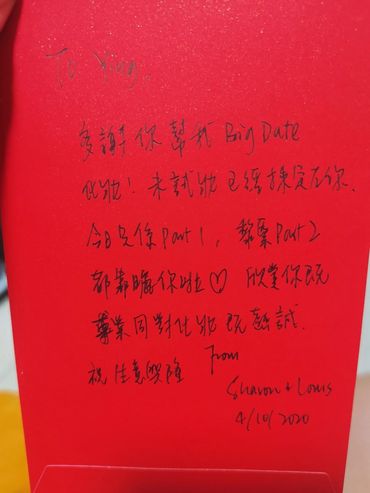 To Ying,
多謝你幫我 Big Date
化妝！未試妝已經揀定左你.
今日只係 Part 1, 黎緊 Part 2
都靠曬你啦♡ 欣賞你既
專業同對化妝既熱誠.
祝生意興隆 From
Sharon + Louis
4/10/2020